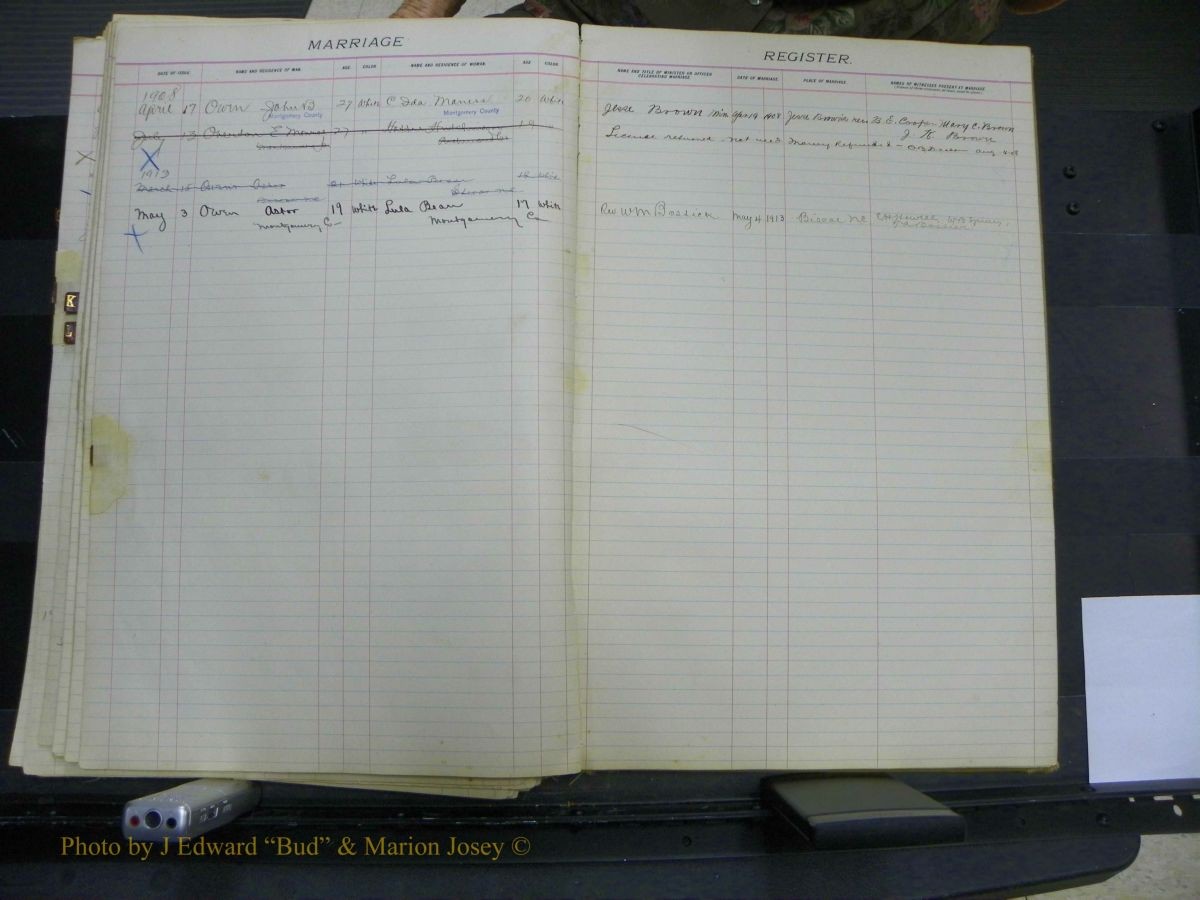 MARRIAGE
REGISTER.
DATE OF ISSUE NAME AND RESIDENCE OF MAN. AGE COLOR NAME AND RESIDENCE OF WOMAN. AGE COLOR
NAME AND TITLE OF MINISTER OR OFFICER CELEBRATING MARRIAGE. DATE OF MARRIAGE. PLACE OF MARRIAGE. NAMES OF WITNESSES PRESENT AT MARRIAGE
1908
April 17 Owen John B 27 White C Ida Maness 20 White Jesse Brown Min Apr 19 1908 Jesse Brown's res B. E. Cooper Mary C. Brown
Montgomery County Montgomery County J. K. Brown
July 13 E 27 " 19 "
License returned not used Money Refunded Aug
X
1913
March 15 Owens Astor 21 White Lula Bean 18 White
Biscoe NC Biscoe NC
May 3 Owen Astor 19 White Lula Bean 17 White Rev W M Bostick May 4 1913 Biscoe NC
Montgomery C Montgomery C
X
K
L
Photo by J Edward “Bud” & Marion Josey ©